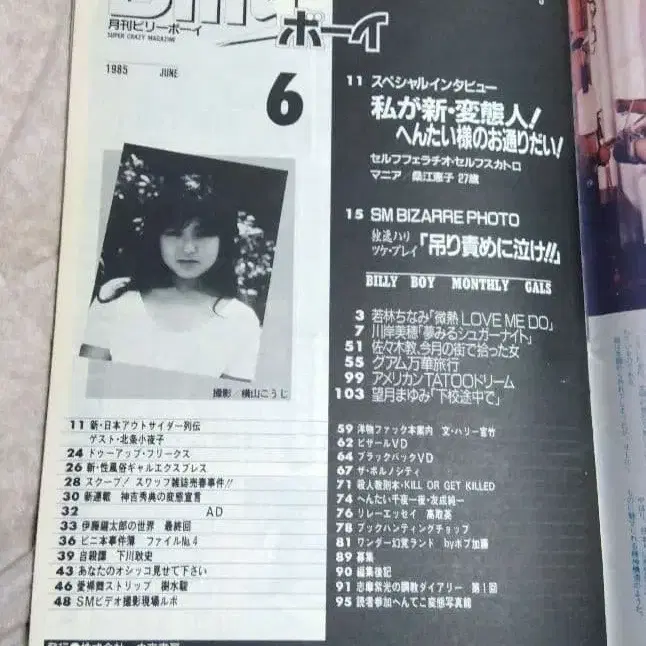 ボーイ
月刊ビリーボーイ
SUPER CRAZY MAGAZINE
1985 JUNE
6
撮影／横山こうじ
11 新・日本アウトサイダー列伝
ゲスト・北条小夜子
24 ドゥーアップ・フリークス
26 新・性風俗ギャルエクスプレス
28 スクープ! スワップ雑誌売春事件!!
30 新連載 神吉秀典の変態宣言
32 AD
33 伊藤鑛太郎の世界 最終回
36 ビニ本事件簿 ファイルNo.4
39 自殺譚 下川耿史
43 あなたのオシッコ見せて下さい
46 愛裸舞ストリップ 樹水駿
48 SMビデオ撮影現場ルポ
11 スペシャルインタビュー
私が新・変態人!
へんたい様のお通りだい!
セルフフェラチオ・セルフスカトロ
マニア／桑江恵子 27歳
15 SM BIZARRE PHOTO
独逸ハリ
ツケ・プレイ「吊り責めに泣け!!」
BILLY BOY MONTHLY GALS
3 若林ちなみ「微熱 LOVE ME DO」
7 川岸美穂「夢みるシュガーナイト」
51 佐々木教、今月の街で拾った女
55 グアム万華旅行
99 アメリカンTATOOドリーム
103 望月まゆみ「下校途中で」
59 洋物ファック本案内 文・ハリー宮竹
62 ビザールVD
64 ブラックパックVD
67 ザ・ポルノシティ
71 殺人教則本・KILL OR GET KILLED
74 へんたい千夜一夜・友成純一
76 リレーエッセイ 高取英
78 ブックハンティングチョップ
81 ワンダー幻覚ランド byボブ加藤
89 募集
90 編集後記
91 志摩紫光の調教ダイアリー 第1回
95 読者参加へんてこ変態写真館